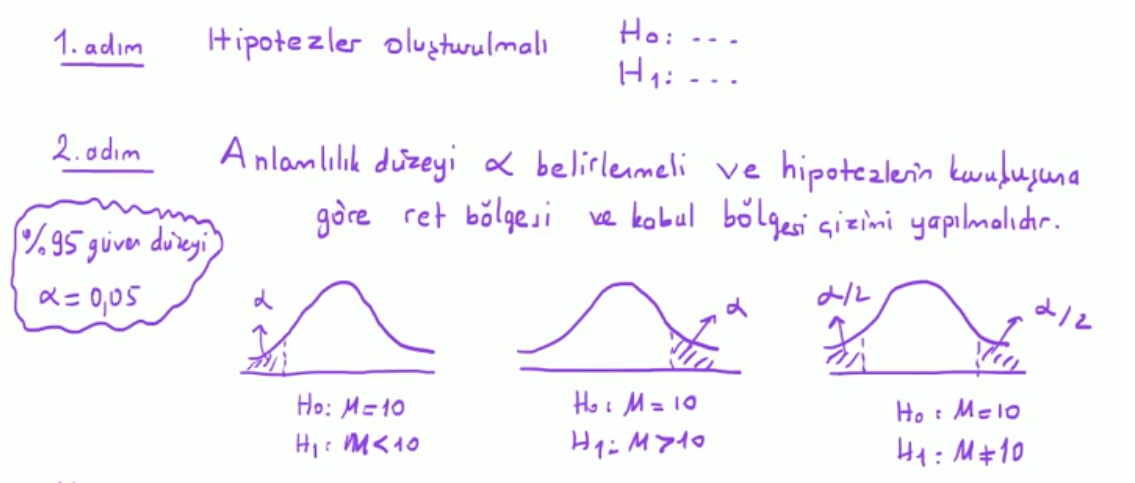 1. adım Hipotezler oluşturulmalı H₀: ---
H₁: ---
2. adım Anlamlılık düzeyi α belirlenmeli ve hipotezlerin kuruluşuna
göre ret bölgesi ve kabul bölgesi çizimi yapılmalıdır.
%95 güven düzeyi
α = 0,05
α
α
α/2
α/2
H₀: M = 10
H₁: M < 10
H₀: M = 10
H₁: M > 10
H₀: M = 10
H₁: M ≠ 10